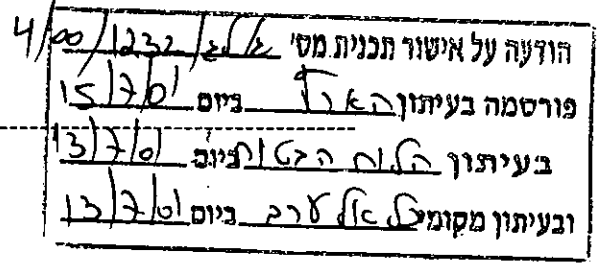 הודעה על אישור תכנית מס' 4/00/1232/
פורסמה בעיתון הארץ ביום 15/7/01
בעיתון הלוח ביום 13/7/01
ובעיתון מקומי כל אל ערב ביום 13/7/01